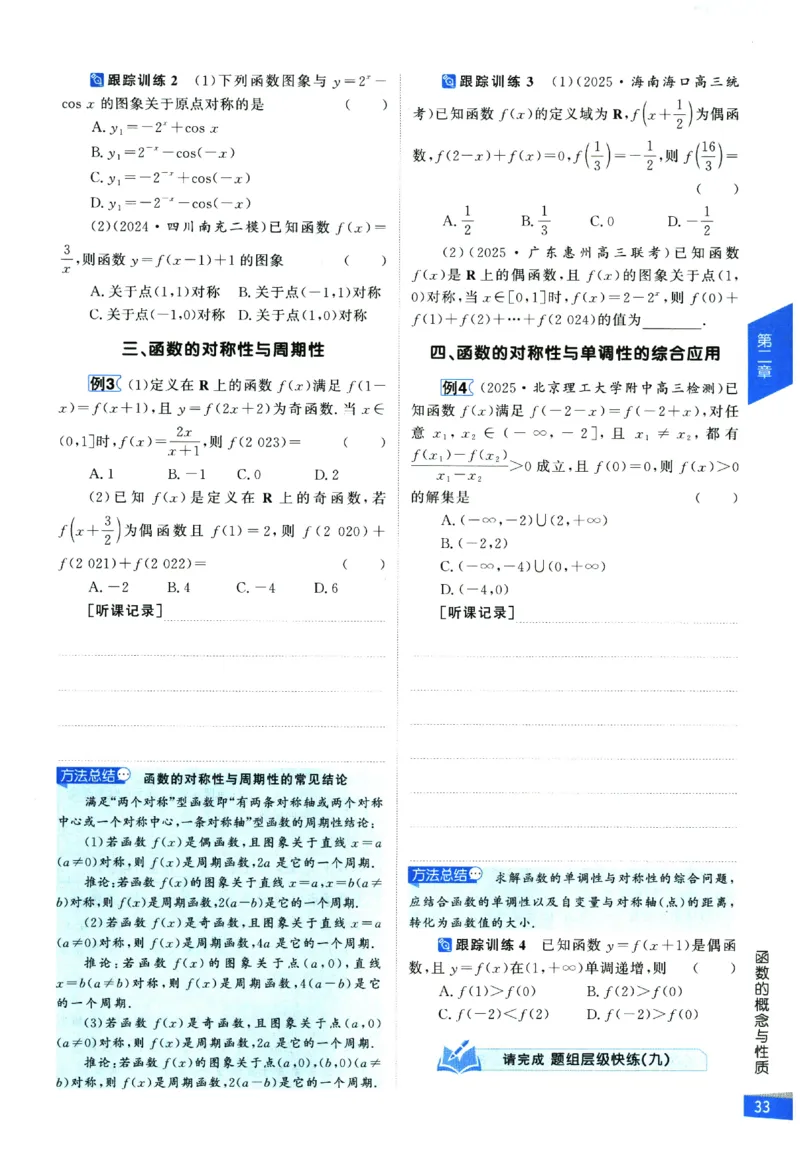 跟踪训练 2 (1)下列函数图象与 y=2ˣ-
cos x 的图象关于原点对称的是 ( )
A. y₁=-2ˣ+cos x
B. y₁=2⁻ˣ-cos(-x)
C. y₁=-2⁻ˣ+cos(-x)
D. y₁=-2⁻ˣ-cos(-x)
(2)(2024·四川南充二模)已知函数 f(x)=
3/x,则函数 y=f(x-1)+1 的图象 ( )
A. 关于点(1,1)对称 B. 关于点(-1,1)对称
C. 关于点(-1,0)对称 D. 关于点(1,0)对称
三、函数的对称性与周期性
例3 (1)定义在 R 上的函数 f(x)满足 f(1-
x)=f(x+1),且 y=f(2x+2)为奇函数. 当 x∈
(0,1]时,f(x)=2x/(x+1),则 f(2 023)= ( )
A. 1 B. -1 C. 0 D. 2
(2)已知 f(x)是定义在 R 上的奇函数,若
f(x+3/2)为偶函数且 f(1)=2,则 f(2 020)+
f(2 021)+f(2 022)= ( )
A. -2 B. 4 C. -4 D. 6
[听课记录]
方法总结 函数的对称性与周期性的常见结论
满足“两个对称”型函数即“有两条对称轴或两个对称
中心或一个对称中心,一条对称轴”型函数的周期性结论:
(1)若函数 f(x)是偶函数,且图象关于直线 x=a
(a≠0)对称,则 f(x)是周期函数,2a 是它的一个周期.
推论:若函数 f(x)的图象关于直线 x=a,x=b(a≠
b)对称,则 f(x)是周期函数,2(a-b)是它的一个周期.
(2)若函数 f(x)是奇函数,且图象关于直线 x=a
(a≠0)对称,则 f(x)是周期函数,4a 是它的一个周期.
推论:若函数 f(x)的图象关于点(a,0),直线
x=b(a≠b)对称,则 f(x)是周期函数,4(a-b)是它
的一个周期.
(3)若函数 f(x)是奇函数,且图象关于点(a,0)
(a≠0)对称,则 f(x)是周期函数,2a 是它的一个周期.
推论:若函数 f(x)的图象关于点(a,0),(b,0)(a≠
b)对称,则 f(x)是周期函数,2(a-b)是它的一个周期.
跟踪训练 3 (1)(2025·海南海口高三统
考)已知函数 f(x)的定义域为 R,f(x+1/2)为偶函
数,f(2-x)+f(x)=0,f(1/3)=-1/2,则 f(16/3)=
( )
A. 1/2 B. 1/3 C. 0 D. -1/2
(2)(2025·广东惠州高三联考)已知函数
f(x)是 R 上的偶函数,且 f(x)的图象关于点(1,
0)对称,当 x∈[0,1]时,f(x)=2-2ˣ,则 f(0)+
f(1)+f(2)+…+f(2 024)的值为______.
四、函数的对称性与单调性的综合应用
例4 (2025·北京理工大学附中高三检测)已
知函数 f(x)满足 f(-2-x)=f(-2+x),对任
意 x₁,x₂∈(-∞,-2],且 x₁≠x₂,都有
(f(x₁)-f(x₂))/(x₁-x₂)>0 成立,且 f(0)=0,则 f(x)>0
的解集是 ( )
A. (-∞,-2)∪(2,+∞)
B. (-2,2)
C. (-∞,-4)∪(0,+∞)
D. (-4,0)
[听课记录]
方法总结 求解函数的单调性与对称性的综合问题,
应结合函数的单调性以及自变量与对称轴(点)的距离,
转化为函数值的大小.
跟踪训练 4 已知函数 y=f(x+1)是偶函
数,且 y=f(x)在(1,+∞)单调递增,则 ( )
A. f(1)>f(0) B. f(2)>f(0)
C. f(-2)<f(2) D. f(-2)>f(0)
请完成 题组层级快练(九)
第二章
函数的概念与性质
33